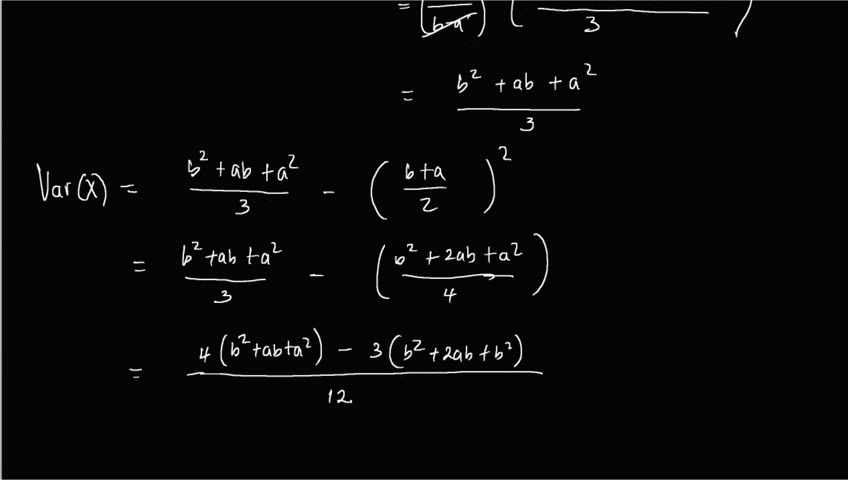 = (1/(b-a)) ( /3 )
= (b² + ab + a²)/3
Var(X) = (b² + ab + a²)/3 - ((b+a)/2)²
= (b² + ab + a²)/3 - ((b² + 2ab + a²)/4)
= (4(b² + ab + a²) - 3(b² + 2ab + b²))/12